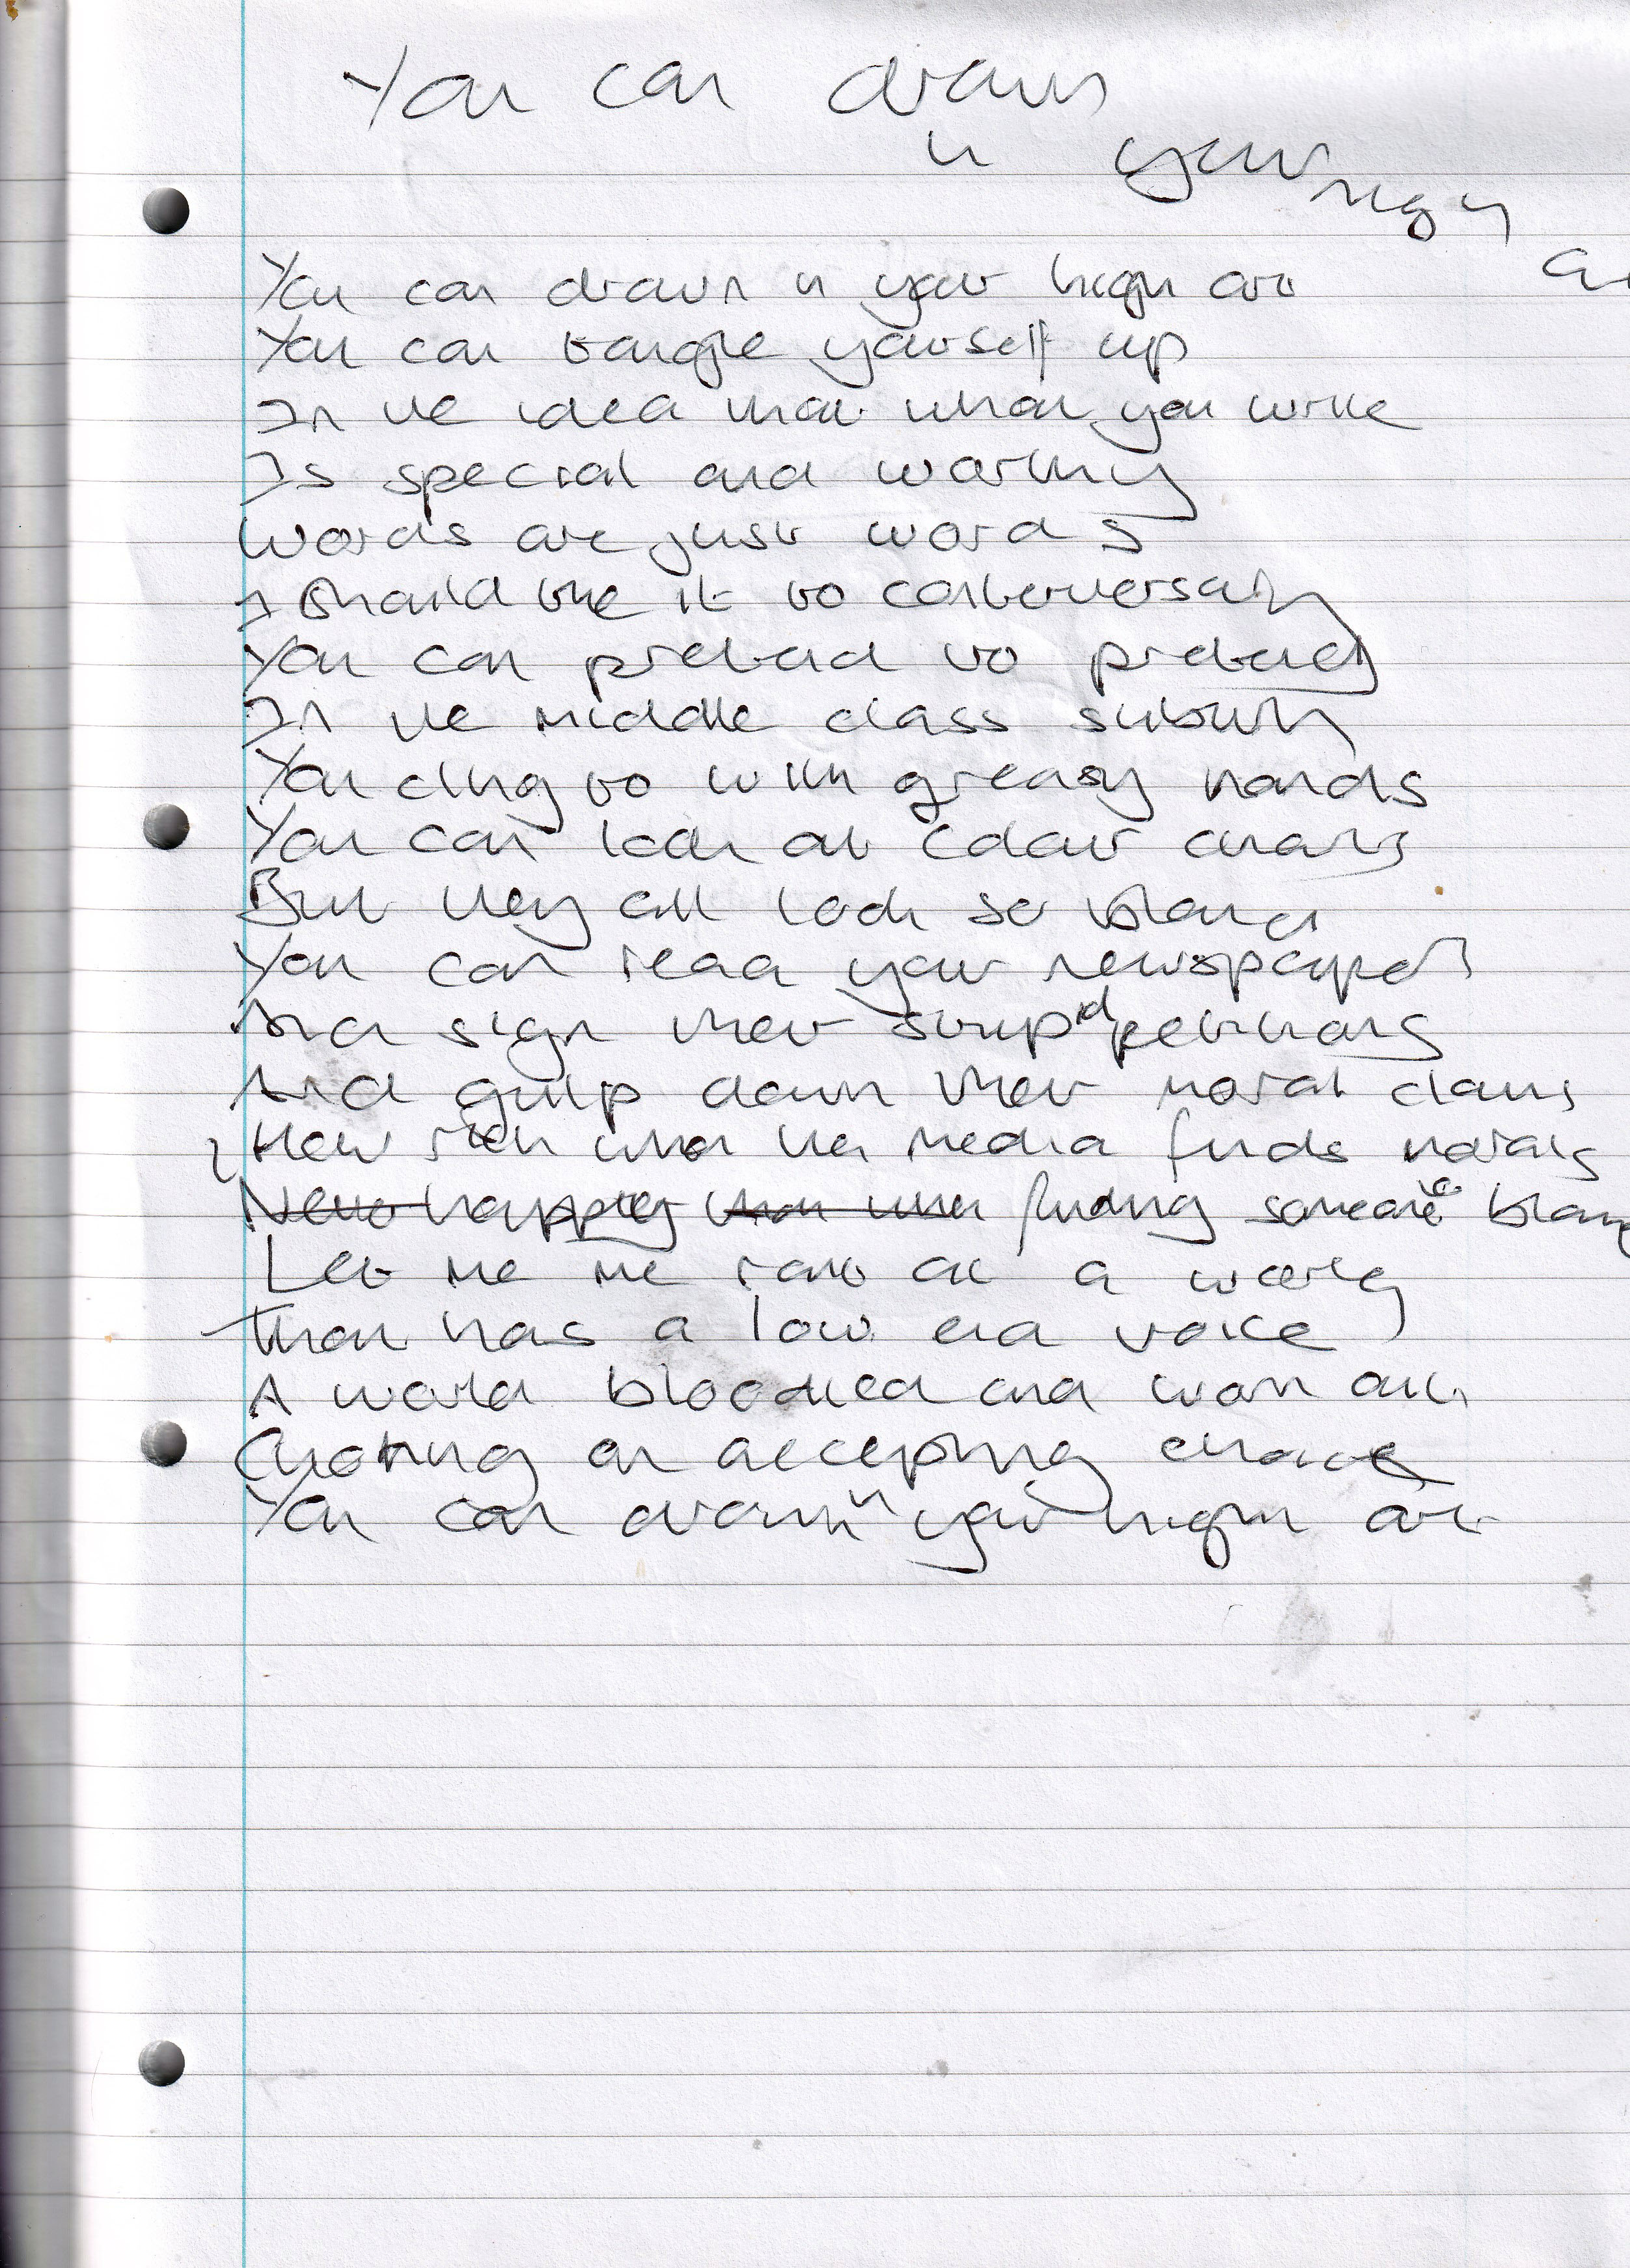 You can drown
in your
high
art
You can drown in your high art
You can tangle yourself up
In the idea that what you write
Is special and worthy
Words are just words
I should like it to controversary
You can pretend to pretend
In the middle class suburb
You cling to with greasy hands
You can look at colour charts
But they all look so bland
You can read your newspapers
And sign their stupid petitions
And gulp down their moral claims
How rich when the media finds morals
Never happier than when finding someone to blame
Let me me rant at a world
That has a low end voice
A world bloodied and worn out
Choking on accepting choice
You can drown in your high art